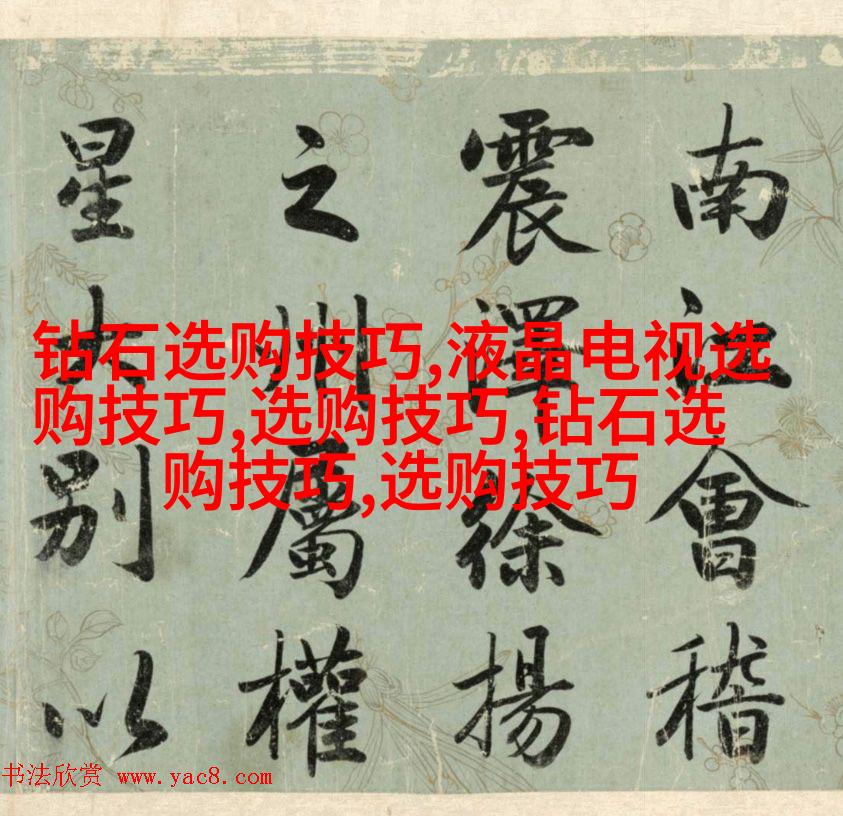 南江會稽
震澤徐揚
之州屬權
星土别以
钻石选购技巧,液晶电视选
购技巧,选购技巧,钻石选
购技巧,选购技巧
书法欣赏 www.yac8.com